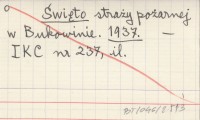 Święto straży pożarnej
w Bukowinie. 1937. —
IKC nr 237, il.